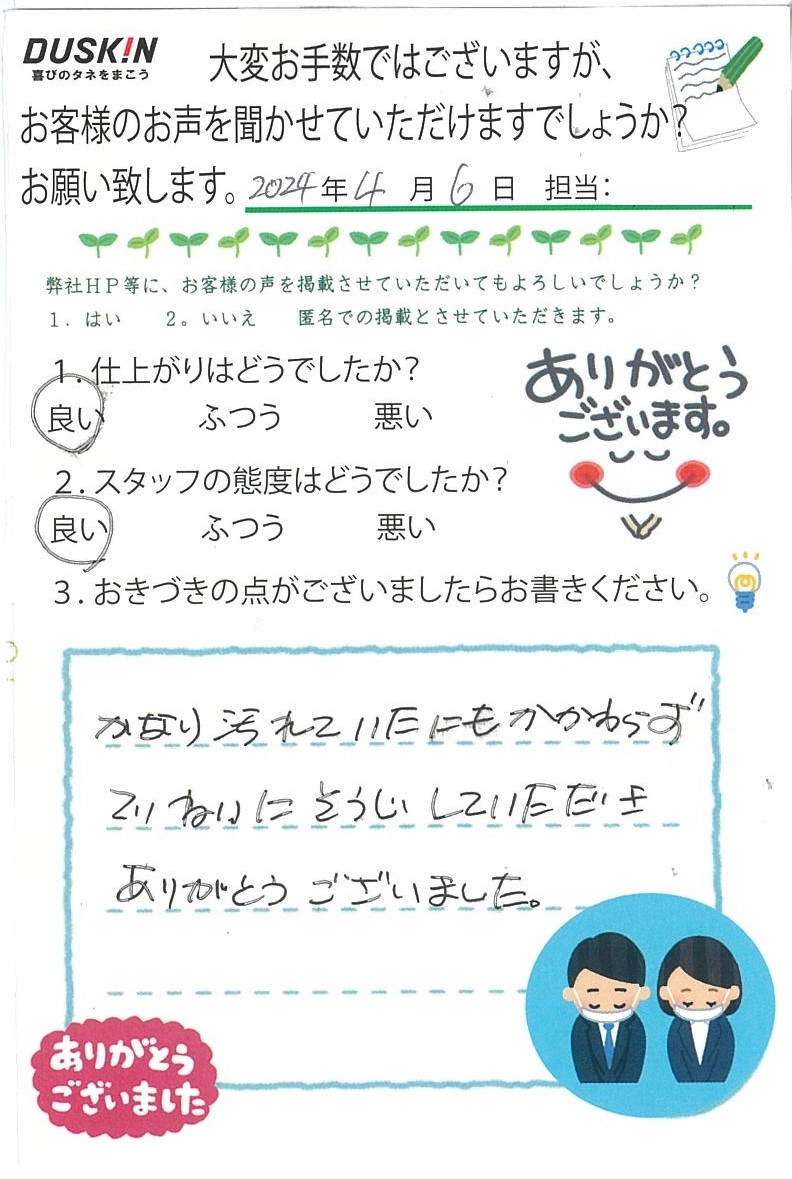 DUSK!N
喜びのタネをまこう
大変お手数ではございますが、
お客様のお声を聞かせていただけますでしょうか?
お願い致します。2024年4月6日 担当:
弊社HP等に、お客様の声を掲載させていただいてもよろしいでしょうか?
1. はい 2。いいえ 匿名での掲載とさせていただきます。
1. 仕上がりはどうでしたか?
良い ふつう 悪い
ありがとう
ございます。
2. スタッフの態度はどうでしたか?
良い ふつう 悪い
3. おきづきの点がございましたらお書きください。
かなり汚れていたにもかかわらず
ていねいにそうじしていただき
ありがとうございました。
ありがとう
ございました